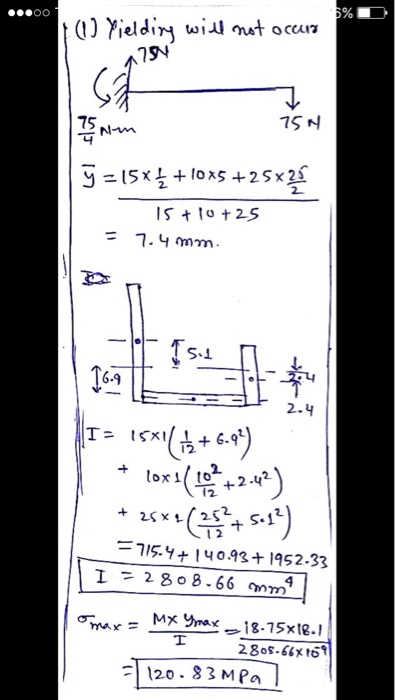 6%
(1) Yielding will not occur
75N
75/4 N-m
75 N
ȳ = (15×1/2 + 10×5 + 25×25/2)/(15 + 10 + 25)
= 7.4 mm.
5.1
6.9
2.4
2.4
I = 15×1(1/12 + 6.9²)
+ 10×1(10²/12 + 2.4²)
+ 25×1(25²/12 + 5.1²)
= 715.4 + 140.93 + 1952.33
I = 2808.66 mm⁴
σmax = M× ymax / I = 18.75×18.1 / 2808.66×10⁹
= 120.83 MPa